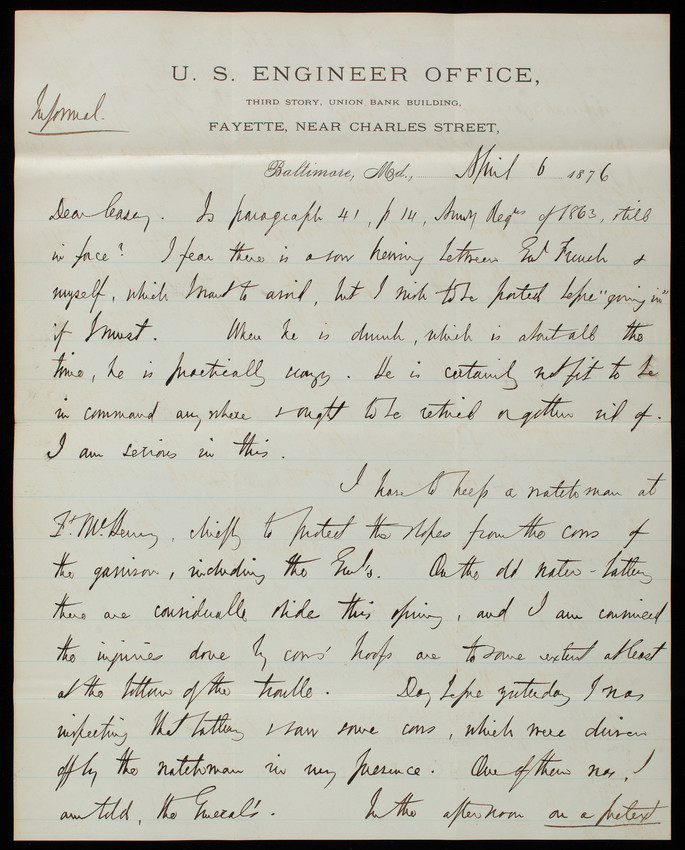 U. S. ENGINEER OFFICE,
THIRD STORY, UNION BANK BUILDING,
Informal.
FAYETTE, NEAR CHARLES STREET,
Baltimore, Md., April 6 1876
Dear Casey. Is paragraph 41, p 14, Army Regns of 1863, still
in force? I fear there is a row brewing between Genl French &
myself, which I want to avoid, but I wish to be posted before "going in"
if I must. When he is drunk, which is about all the
time, he is practically crazy. He is certainly not fit to be
in command anywhere & ought to be retired or gotten rid of.
I am serious in this.
I have to keep a watchman at
Ft. McHenry, chiefly to protect the slopes from the cows of
the garrison, including the Genl's. On the old water-battery
there are considerable slides this spring, and I am convinced
the injuries done by cows' hoofs are to some extent at least
at the bottom of the trouble. Day before yesterday I was
inspecting that battery & saw some cows, which were driven
off by the watchman in my presence. One of them was, I
am told, the General's. In the afternoon on a pretext